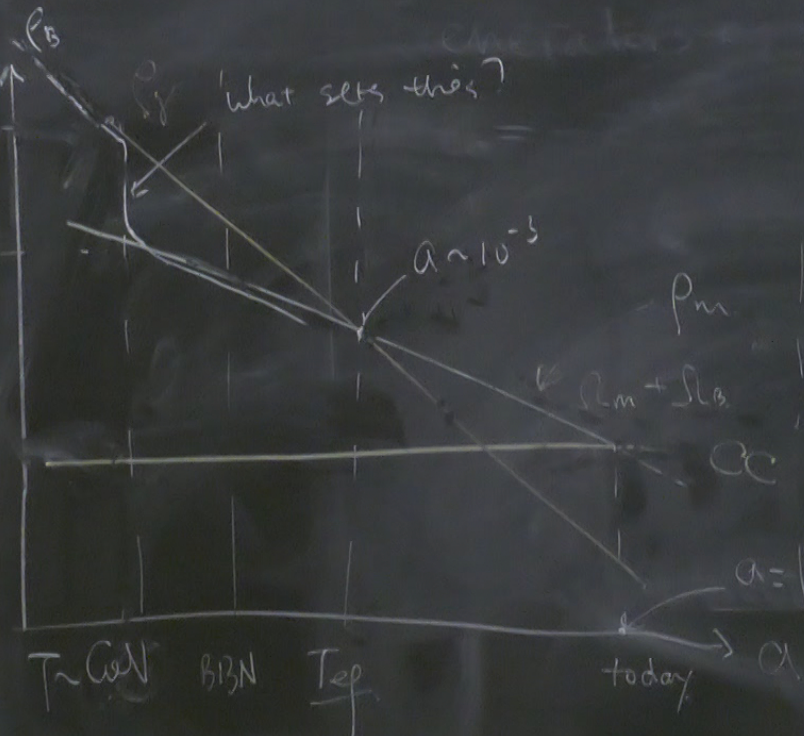 ρ_B
ρ_γ 'What sets this?
a ~ 10^-3
ρ_m
Ω_m + Ω_B
CC
a =
T~GeV BBN T_eq today a